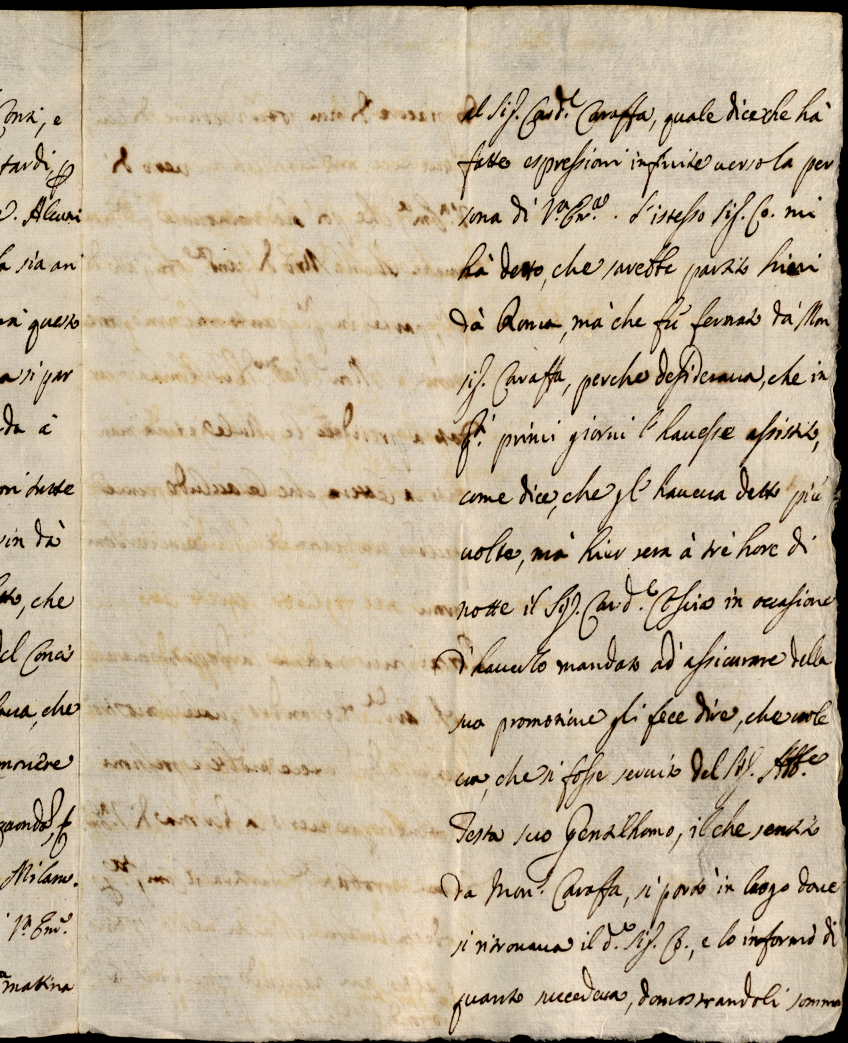 Conti, e
tardi, p
e. Alcuni
la sia an
questo
a si par
da à
ori tutte
vin dà
tto, che
del Conci
haua, che
Milano.
Vª. Emª.
mattina
al Sig. Card.le Caraffa, quale dice che hà
fatte espressioni infinite uerso la per
sona di Vª. Emª. . L'istesso Sig. Co. mi
hà detto, che sarebbe partito hieri
dà Roma, mà che fù fermato dà Mon
sig. Caraffa, perche desideraua, che in
q.ti primi giorni l'hauesse assistito,
come dice, che gl'haueua detto più
uolte, mà hier sera à trè hore di
notte il Sig. Card.le Coscia in occasione
d'hauerlo mandato ad'assicurare della
sua promotione gli fece dire, che uole
ua, che si fosse seruito del Sig. Abb.e
Testa suo Gentilhomo, il che sentito
da Mon.r Caraffa, si portò in luogo doue
si ritrouaua il d.o Sig. Co., e lo informò di
quanto succedeua, domostrandoli somma